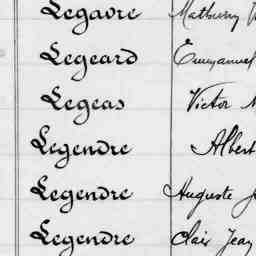 Legavre Mathurin
Legeard Emmanuel
Legeas Victor
Legendre Albert
Legendre Auguste J
Legendre Clair Jean